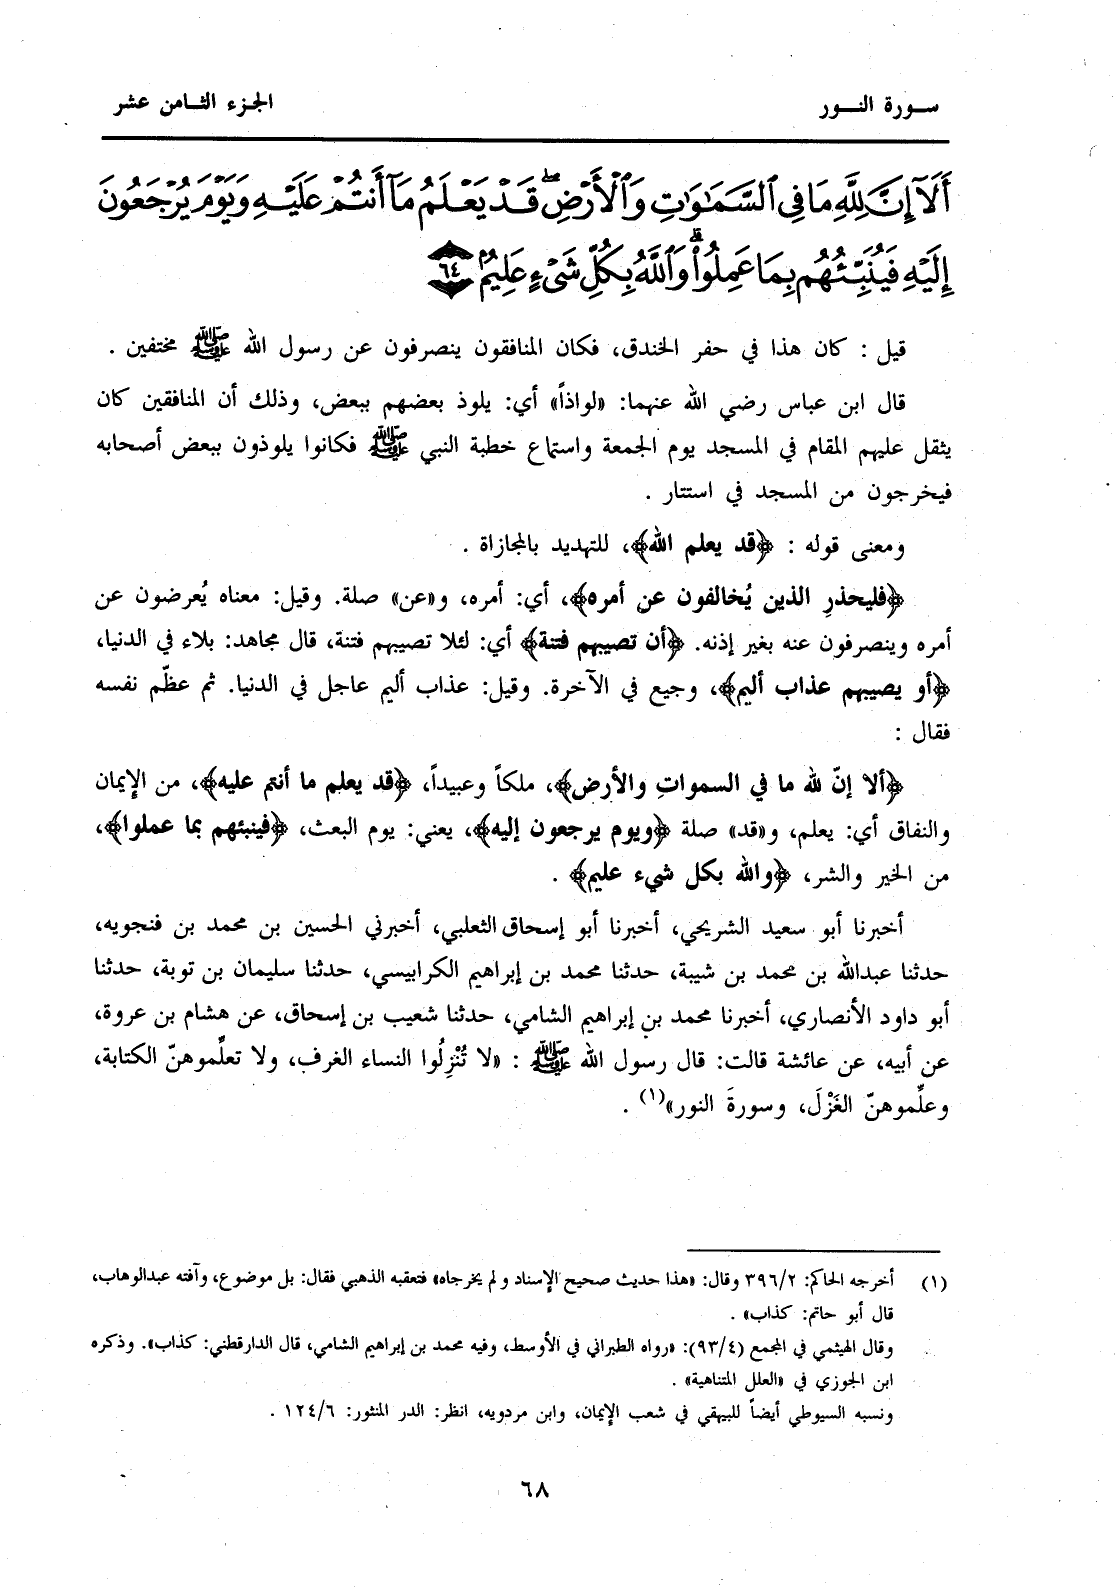 سـورة النـور
الجزء الثامن عشر
أَلَآ إِنَّ لِلَّهِ مَا فِى ٱلسَّمَٰوَٰتِ وَٱلْأَرْضِۖ قَدْ يَعْلَمُ مَآ أَنتُمْ عَلَيْهِ وَيَوْمَ يُرْجَعُونَ
إِلَيْهِ فَيُنَبِّئُهُم بِمَا عَمِلُوا۟ۗ وَٱللَّهُ بِكُلِّ شَىْءٍ عَلِيمٌۢ ٦٤
قيل : كان هذا في حفر الخندق، فكان المنافقون ينصرفون عن رسول الله ﷺ مختفين .
قال ابن عباس رضي الله عنهما: «لواذاً» أي: يلوذ بعضهم ببعض، وذلك أن المنافقين كان
يثقل عليهم المقام في المسجد يوم الجمعة واستماع خطبة النبي ﷺ فكانوا يلوذون ببعض أصحابه
فيخرجون من المسجد في استتار .
ومعنى قوله : ﴿قد يعلم الله﴾، للتهديد بالمجازاة .
﴿فليحذرِ الذين يُخالفون عن أمره﴾، أي: أمره، و«عن» صلة. وقيل: معناه يُعرضون عن
أمره وينصرفون عنه بغير إذنه. ﴿أن تصيبهم فتنة﴾ أي: لئلا تصيبهم فتنة، قال مجاهد: بلاء في الدنيا،
﴿أو يصيبهم عذاب أليم﴾، وجيع في الآخرة. وقيل: عذاب أليم عاجل في الدنيا. ثم عظّم نفسه
فقال :
﴿ألا إنّ لله ما في السموات والأرض﴾، ملكاً وعبيداً، ﴿قد يعلم ما أنتم عليه﴾، من الإيمان
والنفاق أي: يعلم، و«قد» صلة ﴿ويوم يرجعون إليه﴾، يعني: يوم البعث، ﴿فينبئهم بما عملوا﴾،
من الخير والشر، ﴿والله بكل شيء عليم﴾ .
أخبرنا أبو سعيد الشريحي، أخبرنا أبو إسحاق الثعلبي، أخبرني الحسين بن محمد بن فنجويه،
حدثنا عبدالله بن محمد بن شيبة، حدثنا محمد بن إبراهيم الكرابيسي، حدثنا سليمان بن توبة، حدثنا
أبو داود الأنصاري، أخبرنا محمد بن إبراهيم الشامي، حدثنا شعيب بن إسحاق، عن هشام بن عروة،
عن أبيه، عن عائشة قالت: قال رسول الله ﷺ : «لا تُنْزِلُوا النساء الغرف، ولا تعلِّموهنّ الكتابة،
وعلِّموهنّ الغَزْلَ، وسورةَ النور»(١) .
(١) أخرجه الحاكم: ٣٩٦/٢ وقال: «هذا حديث صحيح الإسناد ولم يخرجاه» فتعقبه الذهبي فقال: بل موضوع، وآفته عبدالوهاب،
قال أبو حاتم: كذاب» .
وقال الهيثمي في المجمع (٩٣/٤): «رواه الطبراني في الأوسط، وفيه محمد بن إبراهيم الشامي، قال الدارقطني: كذاب». وذكره
ابن الجوزي في «العلل المتناهية» .
ونسبه السيوطي أيضاً للبيهقي في شعب الإيمان، وابن مردويه، انظر: الدر المنثور: ١٢٤/٦ .
٦٨